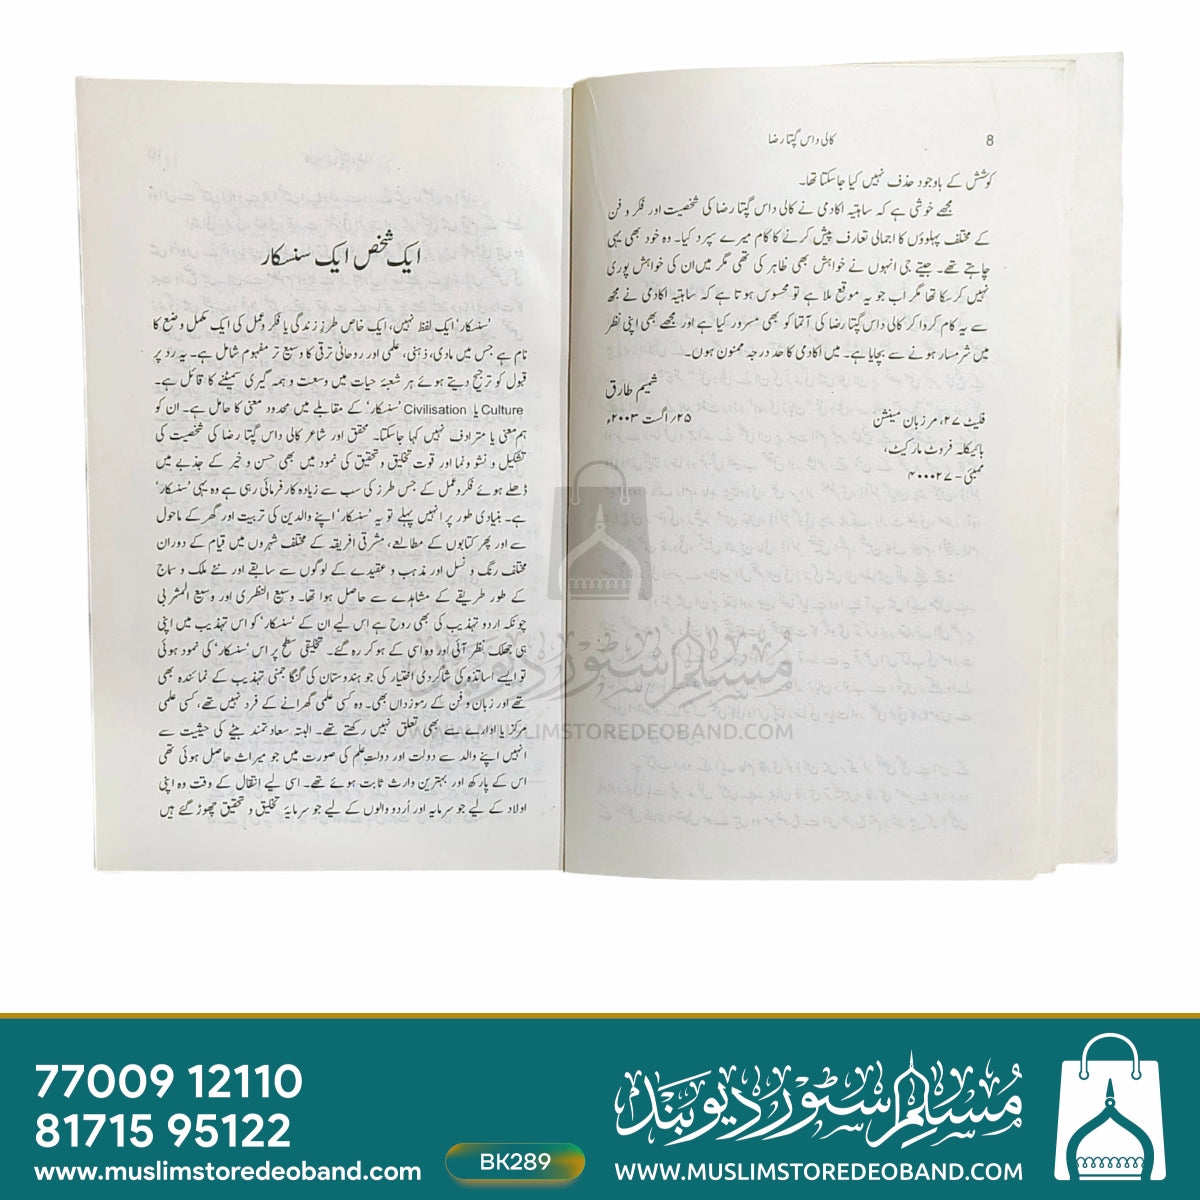 8
کالی داس گپتا رضا
کوشش کے باوجود حذف نہیں کیا جاسکتا تھا۔
مجھے خوشی ہے کہ ساہتیہ اکادمی نے کالی داس گپتا رضا کی شخصیت اور فکر و فن
کے مختلف پہلوؤں کا اجمالی تعارف پیش کرنے کا کام میرے سپرد کیا۔ وہ خود بھی یہی
چاہتے تھے۔ جیتے جی انہوں نے خواہش بھی ظاہر کی تھی مگر میں ان کی خواہش پوری
نہیں کرسکا تھا مگر اب جو یہ موقع ملا ہے تو محسوس ہوتا ہے کہ ساہتیہ اکادمی نے مجھ
سے یہ کام کروا کر کالی داس گپتا رضا کی آتما کو بھی مسرور کیا ہے اور مجھے بھی اپنی نظر
میں شرمسار ہونے سے بچایا ہے۔ میں اکادمی کا حد درجہ ممنون ہوں۔
شمیم طارق
فلیٹ ۲۷، مرزبان مینشن
۲۵؍ اگست ۲۰۰۳ء
بائیکلہ فروٹ مارکیٹ،
ممبئی - ۴۰۰۰۲۷
ایک شخص ایک سنسکار
'سنسکار' ایک لفظ نہیں، ایک خاص طرزِ زندگی یا فکر و عمل کی ایک مکمل وضع کا
نام ہے جس میں مادی، ذہنی، علمی اور روحانی ترقی کا وسیع تر مفہوم شامل ہے۔ یہ رد پر
قبول کو ترجیح دیتے ہوئے ہر شعبۂ حیات میں وسعت و ہمہ گیری سمیٹنے کا قائل ہے۔
Culture یا Civilisation 'سنسکار' کے مقابلے میں محدود معنی کا حامل ہے۔ ان کو
ہم معنی یا مترادف نہیں کہا جاسکتا۔ محقق اور شاعر کالی داس گپتا رضا کی شخصیت کی
تشکیل و نشو و نما اور قوت تخلیق و تحقیق کی نمود میں بھی حسن و خیر کے جذبے میں
ڈھلے ہوئے فکر و عمل کے جس طرز کی سب سے زیادہ کارفرمائی رہی ہے وہ یہی 'سنسکار'
ہے۔ بنیادی طور پر انہیں پہلے تو یہ 'سنسکار' اپنے والدین کی تربیت اور گھر کے ماحول
سے اور پھر کتابوں کے مطالعے، مشرقی افریقہ کے مختلف شہروں میں قیام کے دوران
مختلف رنگ و نسل اور مذہب و عقیدے کے لوگوں سے سابقے اور نئے ملک و سماج
کے طور طریقے کے مشاہدے سے حاصل ہوا تھا۔ وسیع النظری اور وسیع المشربی
چونکہ اردو تہذیب کی بھی روح ہے اس لیے ان کے 'سنسکار' کو اس تہذیب میں اپنی
ہی جھلک نظر آئی اور وہ اسی کے ہو کر رہ گئے۔ تخلیقی سطح پر اس 'سنسکار' کی نمود ہوئی
تو ایسے اساتذہ کی شاگردی اختیار کی جو ہندوستان کی گنگا جمنی تہذیب کے نمائندہ بھی
تھے اور زبان و فن کے رموزداں بھی۔ وہ کسی علمی گھرانے کے فرد نہیں تھے، کسی علمی
مرکز یا ادارے سے بھی تعلق نہیں رکھتے تھے۔ البتہ سعادتمند بیٹے کی حیثیت سے
انہیں اپنے والد سے دولت اور دولتِ علم کی صورت میں جو میراث حاصل ہوئی تھی
اس کے پارکھ اور بہترین وارث ثابت ہوئے تھے۔ اسی لیے انتقال کے وقت وہ اپنی
اولاد کے لیے جو سرمایہ اور اُردو والوں کے لیے جو سرمایۂ تخلیق و تحقیق چھوڑ گئے ہیں
مسلم سٹور دیوبند
WWW.MUSLIMSTOREDEOBAND.COM
77009 12110
81715 95122
www.muslimstoredeoband.com
BK289
مسلم سٹور دیوبند
WWW.MUSLIMSTOREDEOBAND.COM